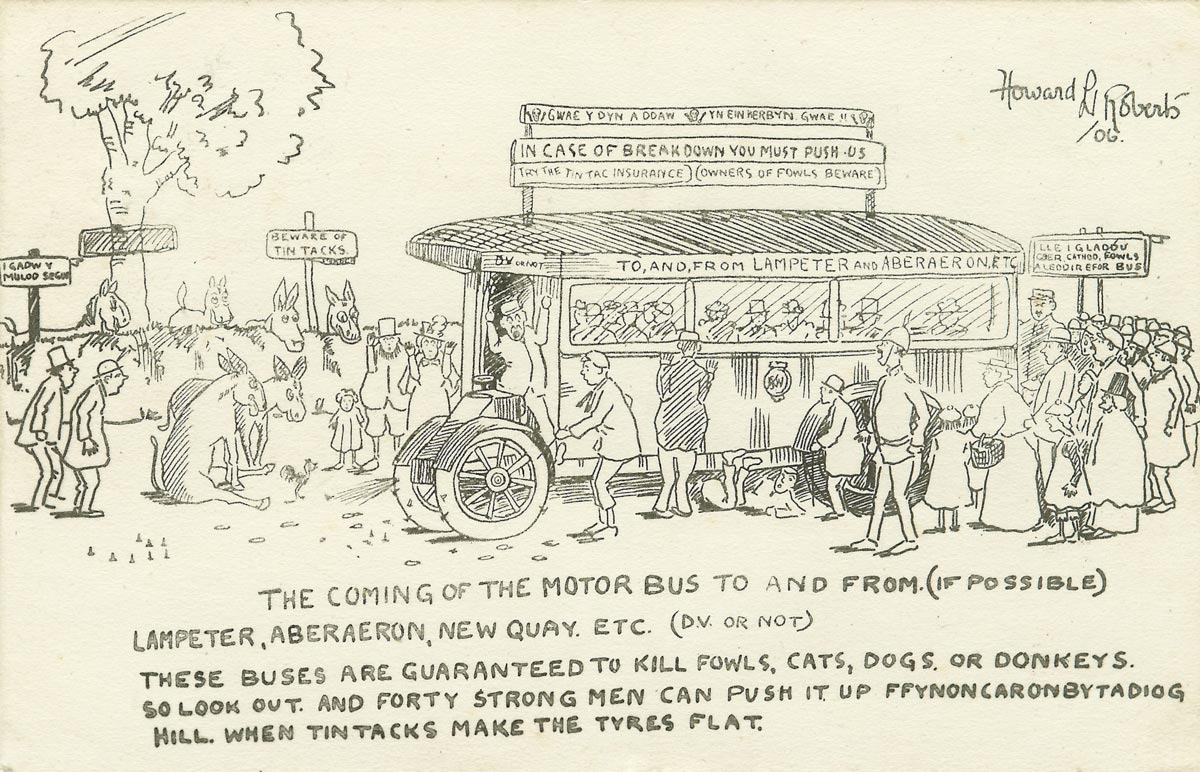 Howard L Roberts
/06.
GWAE Y DYN A DDAW YN EIN HERBYN. GWAE !!
IN CASE OF BREAKDOWN YOU MUST PUSH US
TRY THE TIN TAC INSURANCE) (OWNERS OF FOWLS BEWARE)
BEWARE OF
TIN TACKS.
I GADW Y
MULOD SEGUR
LLE I GLADDU
CATHOD, FOWLS
BUS
D.V. OR NOT
TO, AND, FROM LAMPETER AND ABERAERON, ETC
THE COMING OF THE MOTOR BUS TO AND FROM. (IF POSSIBLE)
LAMPETER, ABERAERON, NEW QUAY. ETC. (D.V. OR NOT)
THESE BUSES ARE GUARANTEED TO KILL FOWLS, CATS, DOGS. OR DONKEYS.
SO LOOK OUT. AND FORTY STRONG MEN CAN PUSH IT UP FFYNONCARONBYTADIOG
HILL. WHEN TINTACKS MAKE THE TYRES FLAT.